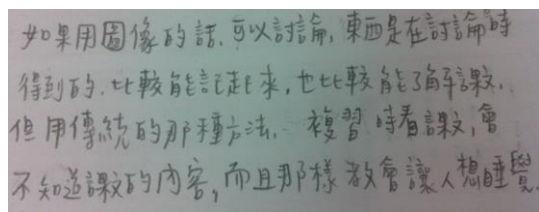 如果用圖像的話,可以討論,東西是在討論時
得到的.比較能記起來,也比較能了解課文.
但用傳統的那種方法,複習時看課文,會
不知道課文的內容,而且那樣教會讓人想睡覺.